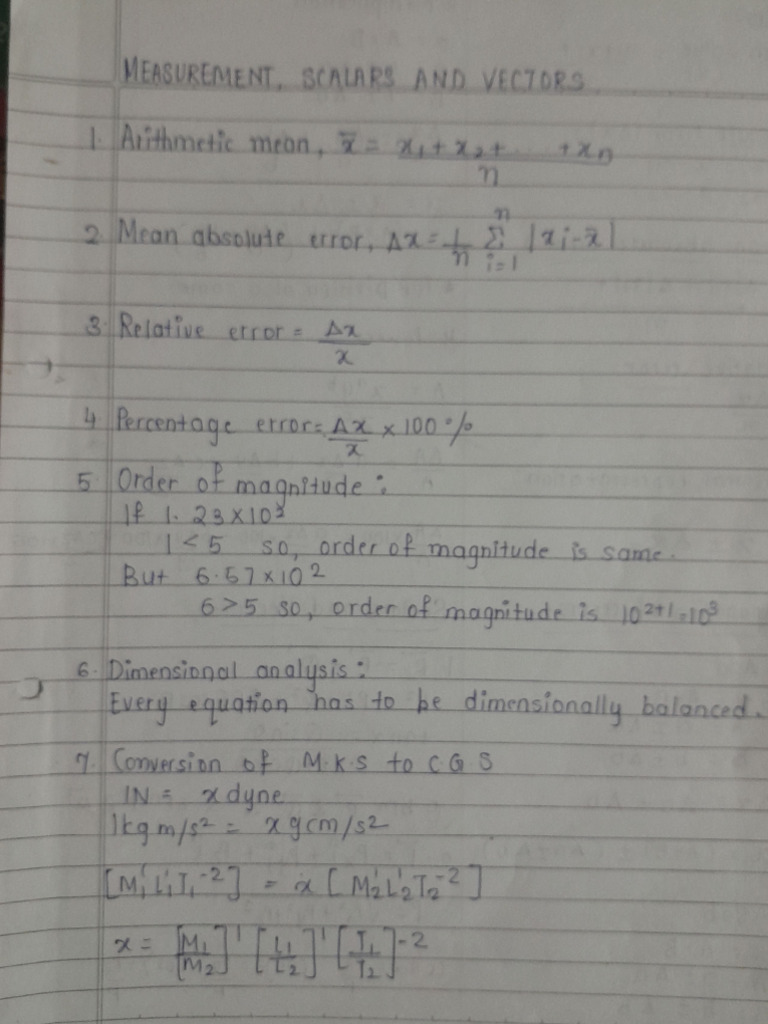 MEASUREMENT, SCALARS AND VECTORS
1. Arithmetic mean, x̄ = x₁ + x₂ + ... + xn / n
2. Mean absolute error, Δx = 1/n Σ(i=1 to n) |xi - x̄|
3. Relative error = Δx / x
4. Percentage error = Δx / x × 100 %
5. Order of magnitude :
If 1.23 × 10³
1 < 5 so, order of magnitude is same.
But 6.57 × 10²
6 > 5 so, order of magnitude is 10²⁺¹ = 10³
6. Dimensional analysis :
Every equation has to be dimensionally balanced.
7. Conversion of M.K.S to C.G.S
1N = x dyne
1kg m/s² = x g cm/s²
[M₁¹L₁¹T₁⁻²] = x [M₂¹L₂¹T₂⁻²]
x = [M₁/M₂]¹ [L₁/L₂]¹ [T₁/T₂]⁻²